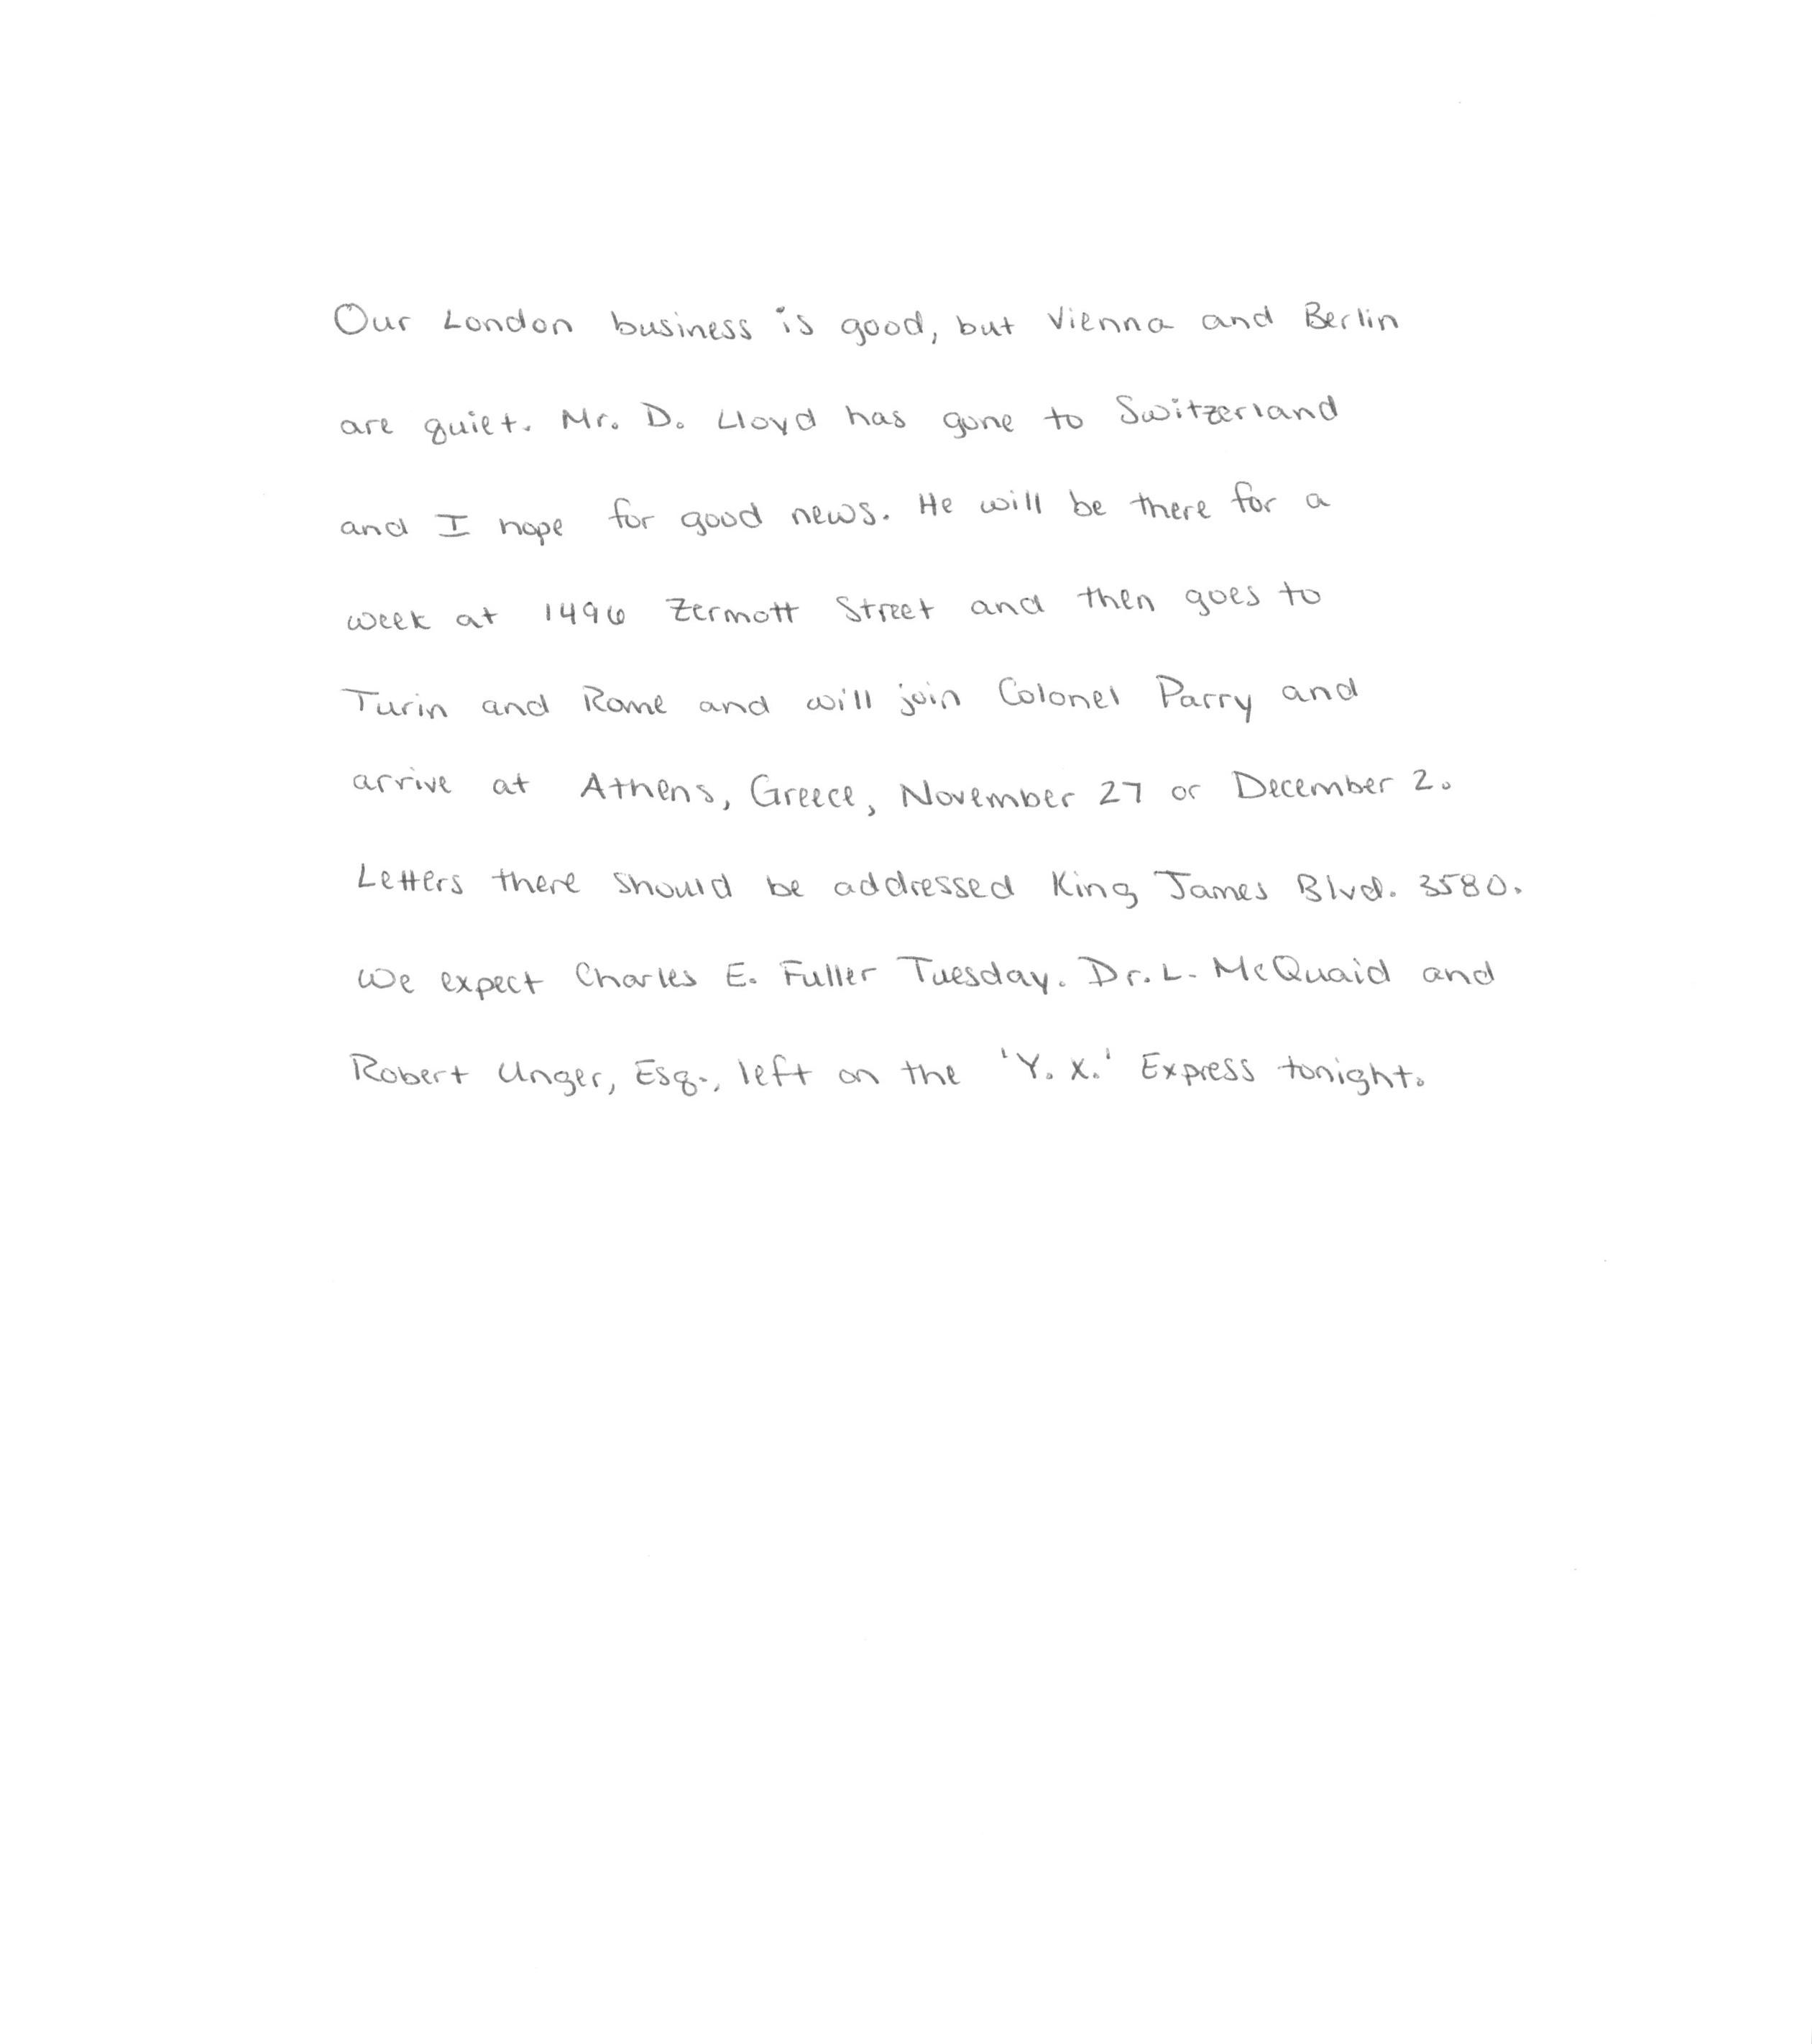 Our London business is good, but Vienna and Berlin
are quiet. Mr. D. Lloyd has gone to Switzerland
and I hope for good news. He will be there for a
week at 1496 Zermott Street and then goes to
Turin and Rome and will join Colonel Parry and
arrive at Athens, Greece, November 27 or December 2.
Letters there should be addressed King James Blvd. 3580.
We expect Charles E. Fuller Tuesday. Dr. L. McQuaid and
Robert Unger, Esq., left on the 'Y. X.' Express tonight.